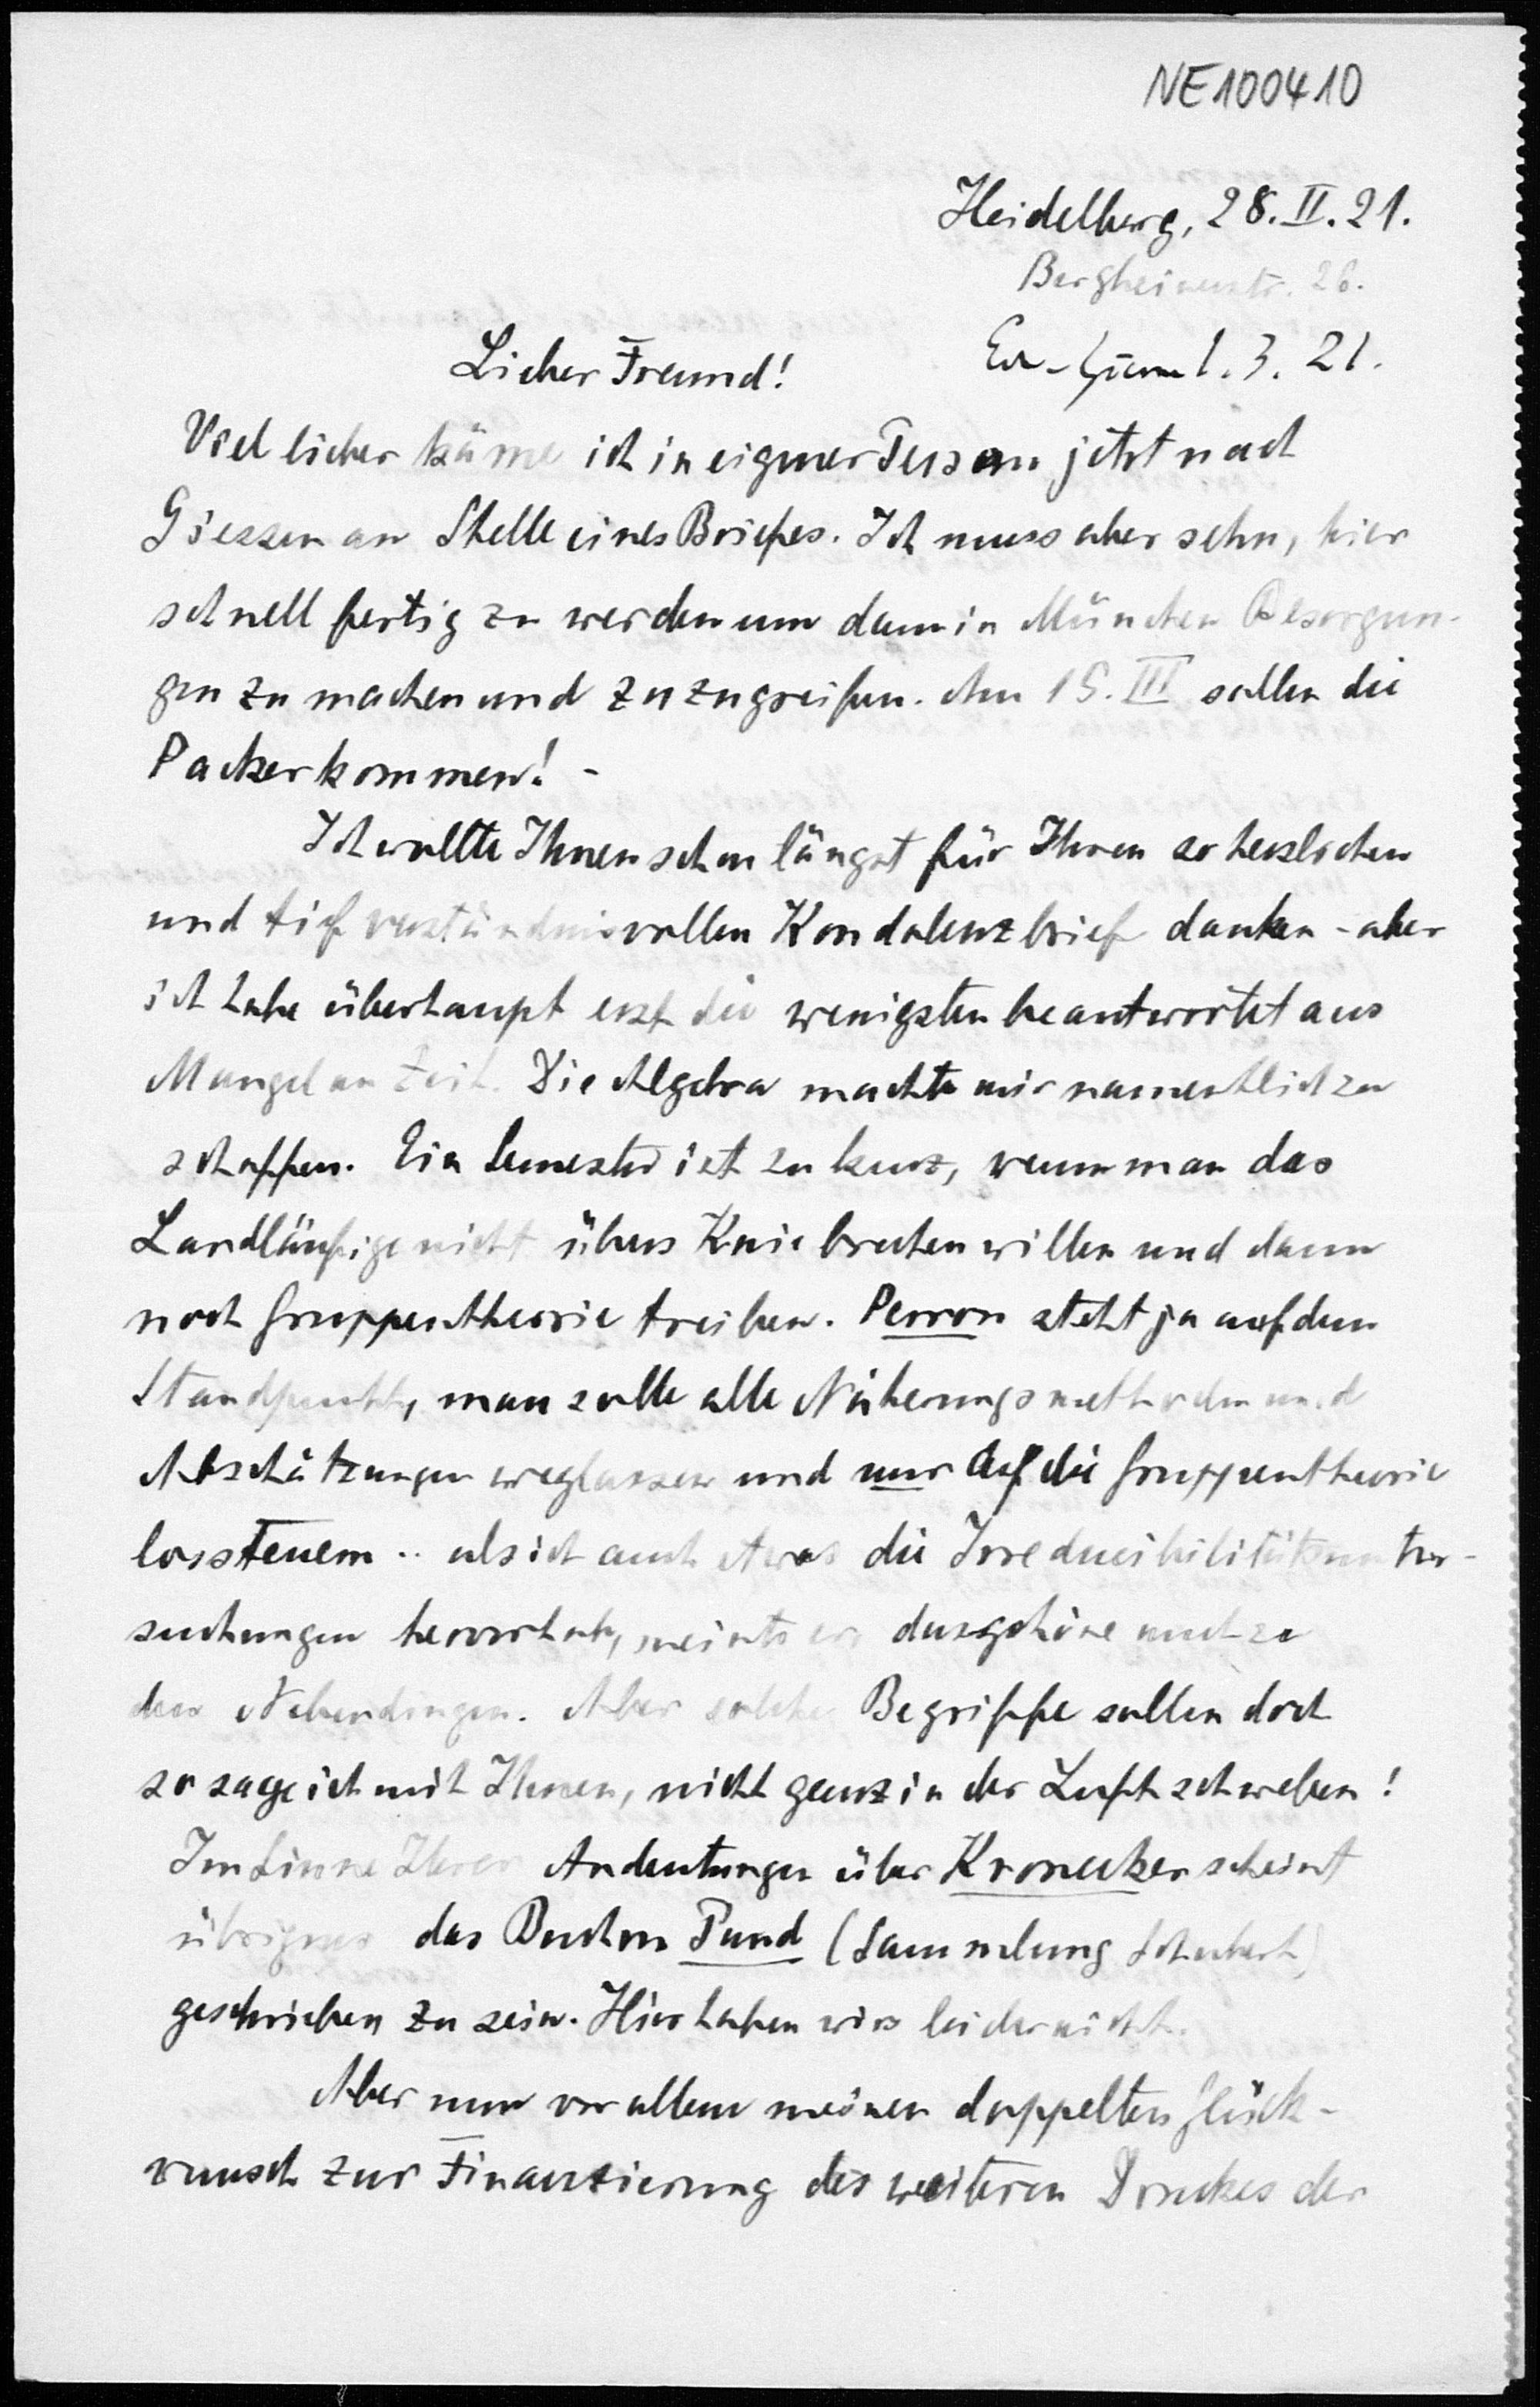 NE100410
Heidelberg, 28. II. 21.
Bergheimerstr. 26.
Lieber Freund!
1. 3. 21.
Viel lieber käme ich in eigner Person jetzt nach
Giessen an Stelle eines Briefes. Ich muss aber sehn, hier
schnell fertig zu werden um dann in München Besorgun-
gen zu machen und zuzugreifen. Am 15. III sollen die
Packer kommen! -
Ich wollte Ihnen schon längst für Ihren so herzlichen
und tief verständnisvollen Kondolenzbrief danken - aber
ich habe überhaupt erst die wenigsten beantwortet aus
Mangel an Zeit. Die Algebra machte mir namentlich zu
schaffen. Ein Semester ist zu kurz, wenn man das
Landläufige nicht übers Knie brechen willen und dann
noch Gruppentheorie treiben. Perron steht ja auf dem
Standpunkt, man solle alle Näherungsmethoden und
Abschätzungen weglassen und nur auf die Gruppentheorie
lossteuern .. als ich auch etwas die Irreducibilitätsunter-
suchungen hervorhob, meinte er das gehöre auch zu
den Nebendingen. Aber solche Begriffe sollen doch
so sage ich mit Ihnen, nicht ganz in der Luft schweben!
Im Sinne Ihrer Andeutungen über Kronecker scheint
übrigens das Buch von Pund (Sammlung Schubert)
geschrieben zu sein. Hier haben wirs leider nicht.
Aber nun vor allem meinen doppelten Glück-
wunsch zur Finanzierung des weiteren Druckes der